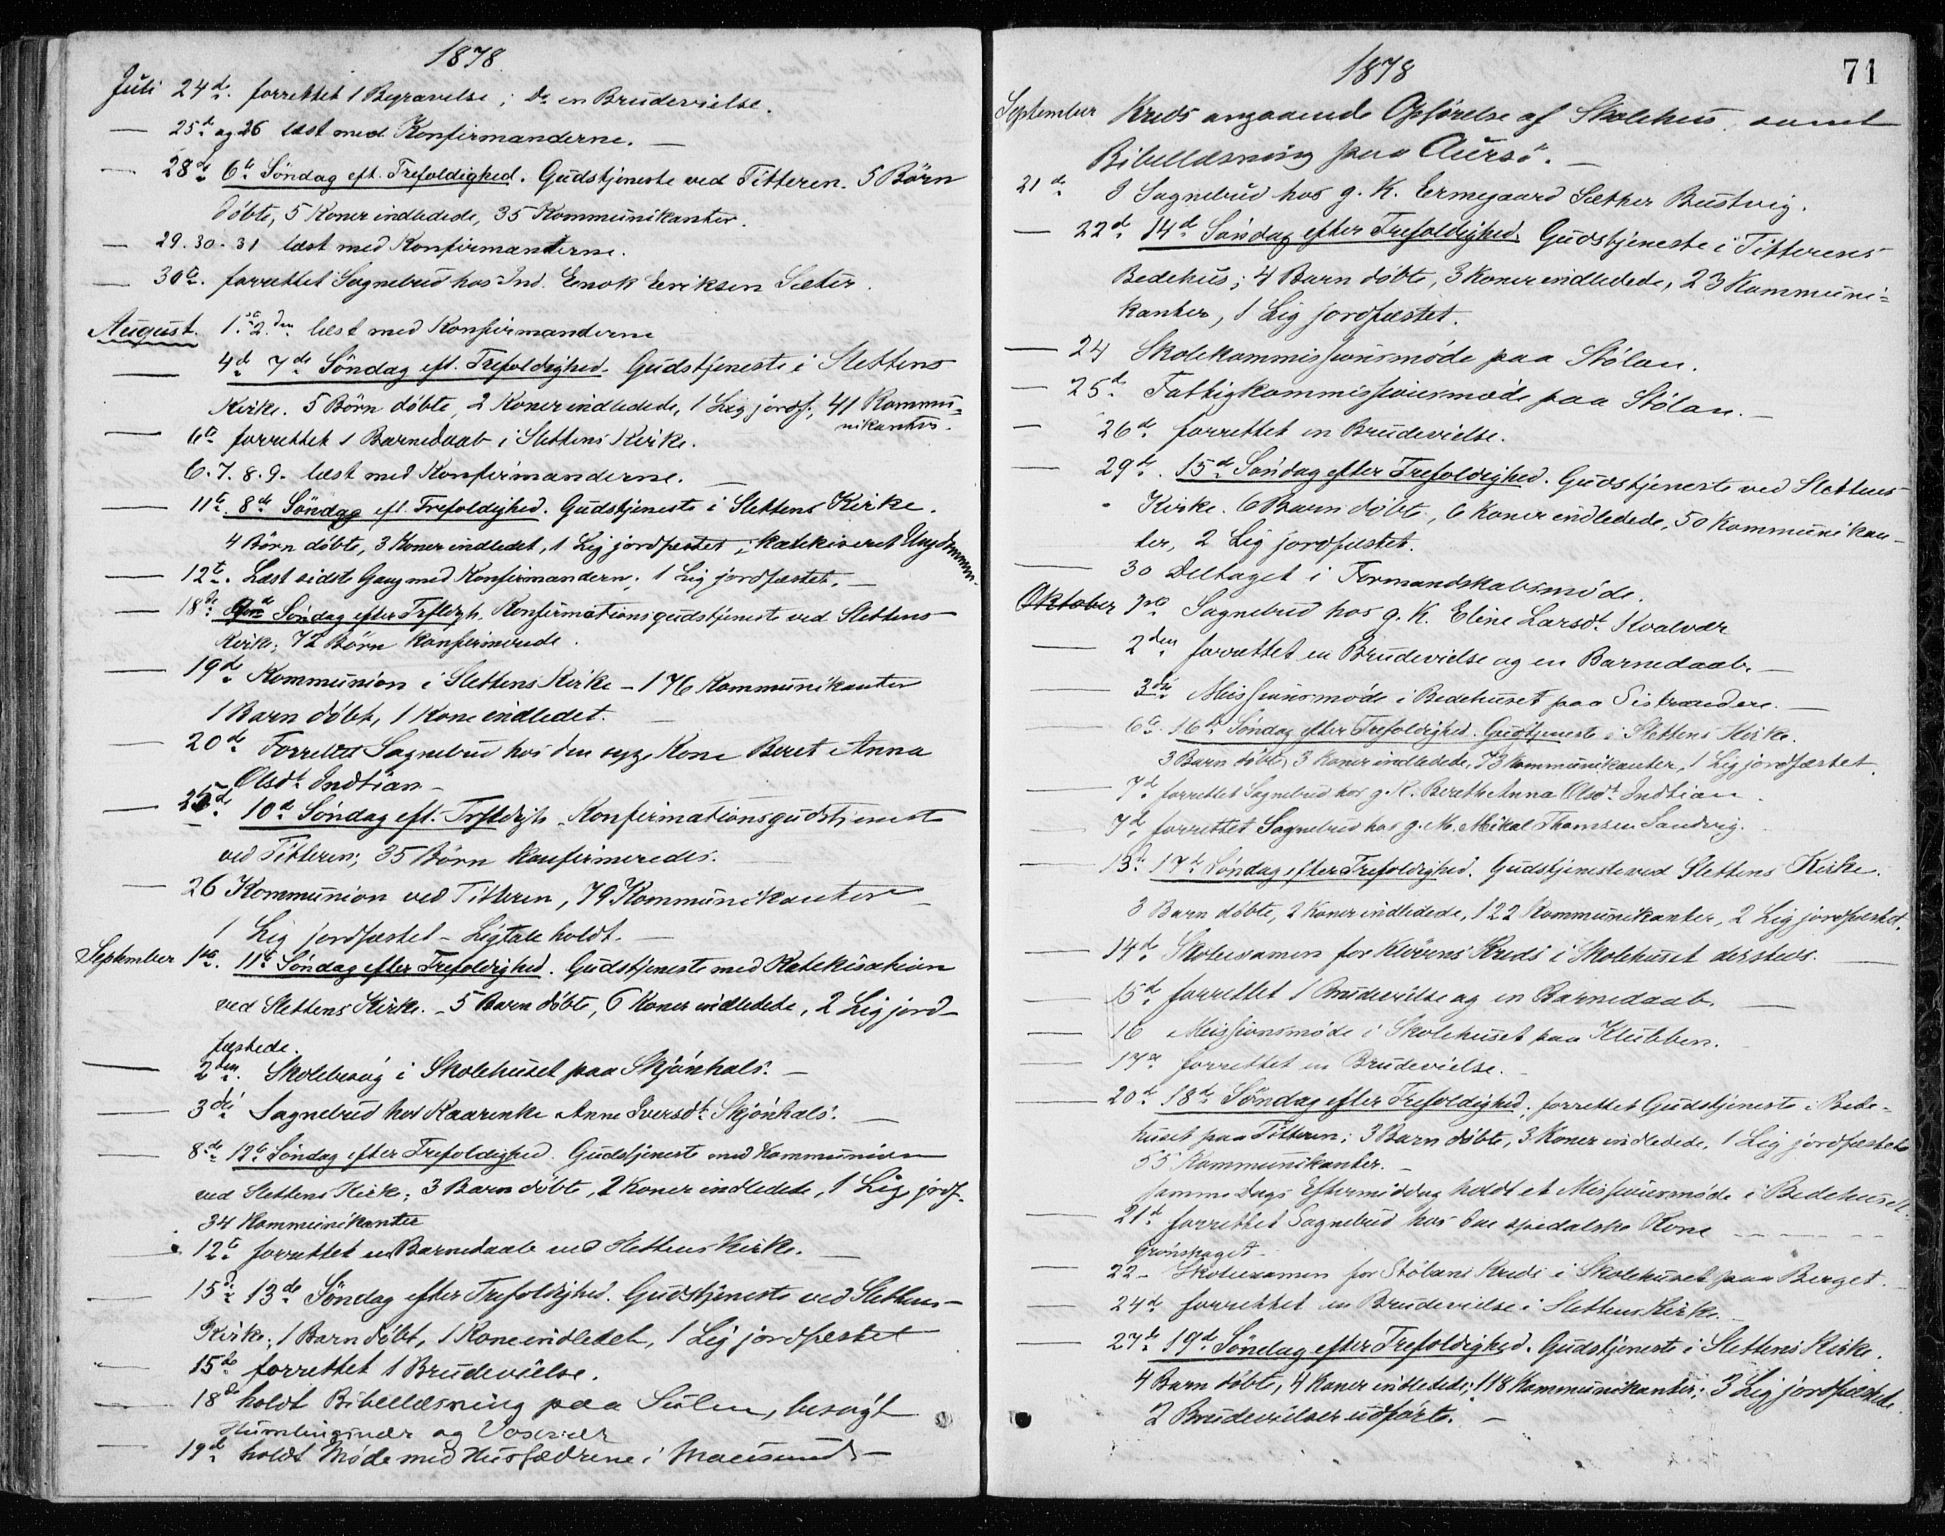 1878
Juli 24de forrettet 1 Begravelse; Do en Brudevielse.
— 25de og 26 læst med Konfirmanderne. —
— 28de 6te Söndag eft. Trefoldighed. Gudstjeneste ved Titteren. 5 Börn
döbte, 5 Koner indledede, 35 Kommunikanter.
— 29. 30. 31 læst med Konfirmanderne.
— 30te forrettet Sognebud hos Ind. Enok Eriksen Sæter.
August. 1ste 2den læst med Konfirmanderne
— 4de 7de Söndag eft. Trefoldighed. Gudstjeneste i Slettens
Kirke. 5 Börn döbte, 2 Koner indledede, 1 Lig jordf., 41 Kommu-
nikanter.
— 6te forrettet 1 Barnedaab i Slettens Kirke.
6. 7. 8. 9. læst med Konfirmanderne. —
— 11te 8de Söndag eft. Trefoldighed. Gudstjeneste i Slettens Kirke.
4 Börn döbte, 3 Koner indledet, 1 Lig jordfæstet; katekiseret Ungdommen.
— 12te Læst sidste Gang med Konfirmandern; 1 Lig jordfæstet. —
— 18de Söndag efter Trfldigh. Konfirmationsgudstjeneste ved Slettens
Kirke; 72 Börn konfirmerede.
— 19de Kommunion i Slettens Kirke – 176 Kommunikanter
1 Barn döbt, 1 Kone indledet. —
— 20de Forrettet Sognebud hos den syge Kone Beret Anna
Olsdt Indtian –
— 25de 10de Söndag eft. Trfldigh. Konfirmationsgudstjeneste
ved Titteren; 35 Börn konfirmeredes. —
— 26 Kommunion ved Titteren, 79 Kommunikanter —
1 Lig jordfæstet – Ligtale holdt. —
September 1ste 11te Söndag efter Trefoldighed. Gudstjeneste med Katekisation
ved Slettens Kirke. – 5 Barn döbte, 6 Koner indledede, 2 Lig jord-
fæstede.
— 2den Skolebesøg i Skolehuset paa Skjönhals. –
— 3die Sognebud hos Kaarenke Anne Iversdt Skjönhals. —
— 8de 12te Söndag efter Trefoldighed. Gudstjeneste med Kommunion
ved Slettens Kirke; 3 Barn döbte, 2 Koner indledede, 1 Lig jordf.
34 Kommunikanter
12te forrettet en Barnedaab ved Slettens Kirke. —
— 15de 13de Söndag efter Trefoldighed. Gudstjeneste ved Slettens –
Kirke; 1 Barn döbt, 1 Kone indledet, 1 Lig jordfæstet
— 15de forrettet 1 Brudevielse.
— 18de holdt Bibellæsning paa Sulen, besøgt
Humlingsvær og Vosevær
— 19de holdt Möde med Husfædrene i Mausund –
1878
71
September Kreds angaaende Opførelse af Skolehus, samt
Bibellæsning paa Aursö. –
21de Sognebud hos g. K. Ermegaard Sæther Bustvig.
— 22de 14de Söndag efter Trefoldighed. Gudstjeneste i Titterens
Bedehus; 4 Barn döbte, 3 Koner indledede, 23 Kommuni=
kanter, 1 Lig jordfæstet.
— 24 Skolekommissionsmöde paa Stölan.
— 25de Fattigkommissionsmöde paa Stölan. –
— 26de forrettet en Brudevielse.
— 29de 15de Söndag efter Trefoldighed. Gudstjeneste ved Slettens
Kirke. 6 Barn döbte, 6 Koner indledede, 50 Kommunikan-
ter, 2 Lig jordfæstet.
— 30 Deltaget i Formandskabsmöde.
Oktober Sognebud hos g. K. Eline Larsdt Kvalvær
— 2den forrettet en Brudevielse og en Barnedaab. —
— 3die Missionsmöde i Bedehuset paa Sistranden. —
— 6te 16de Söndag efter Trefoldighed. Gudtjeneste i Slettens Kirke.
3 Barn döbte, 3 Koner indledede, 73 Kommunikanter, 1 Lig jordfæstet.
— 7de forrettet Sognebud hos g. K. Bereth Anna Olsdt Indtian.
— 7de forrettet Sognebud hos g. M. Mikal Thomsen Sandvig.
— 13de 17de Söndag efter Trefoldighed. Gudstjeneste ved Slettens Kirke.
3 Barn döbte, 2 Koner indledede, 122 Kommunikanter, 2 Lig jordfæstet.
— 14de Skoleexamen for Kløvens Kreds i Skolehuset dersteds. —
— 15de forrettet 1 Brudevielse og en Barnedaab. —
— 16 Missionsmöde i Skolehuset paa Klubben.
— 17de forrettet en Brudevielse. –
— 20de 18de Söndag efter Trefoldighed. forrettet Gudstjeneste i Bede-
huset paa Titteren; 3 Barn döbte, 3 Koner indledede, 1 Lig jordfæstet
55 Kommunikanter. –
samme Dags Eftermiddag holdt et Missionsmöde i Bedehuset.
— 21de forrettet Sognebud hos den spedalske Kone
Grönskaget –
— 22 – Skoleexamen for Stölans Kreds i Skolehuset paa Berget.
— 24de forrettet en Brudevielse i Slettens Kirke. –
— 27de 19de Söndag efter Trefoldighed. Gudstjeneste i Slettens Kirke.
4 Barn döbte, 4 Koner indledede; 118 Kommunikanter; 3 Lig jordfæstede.
2 Brudevielser udførte. –